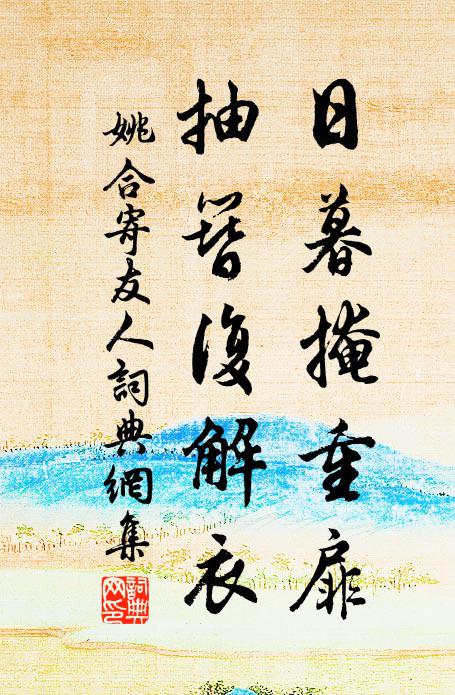 日暮掩重扉
抽簪復解衣
姚合寄友人詞典網集